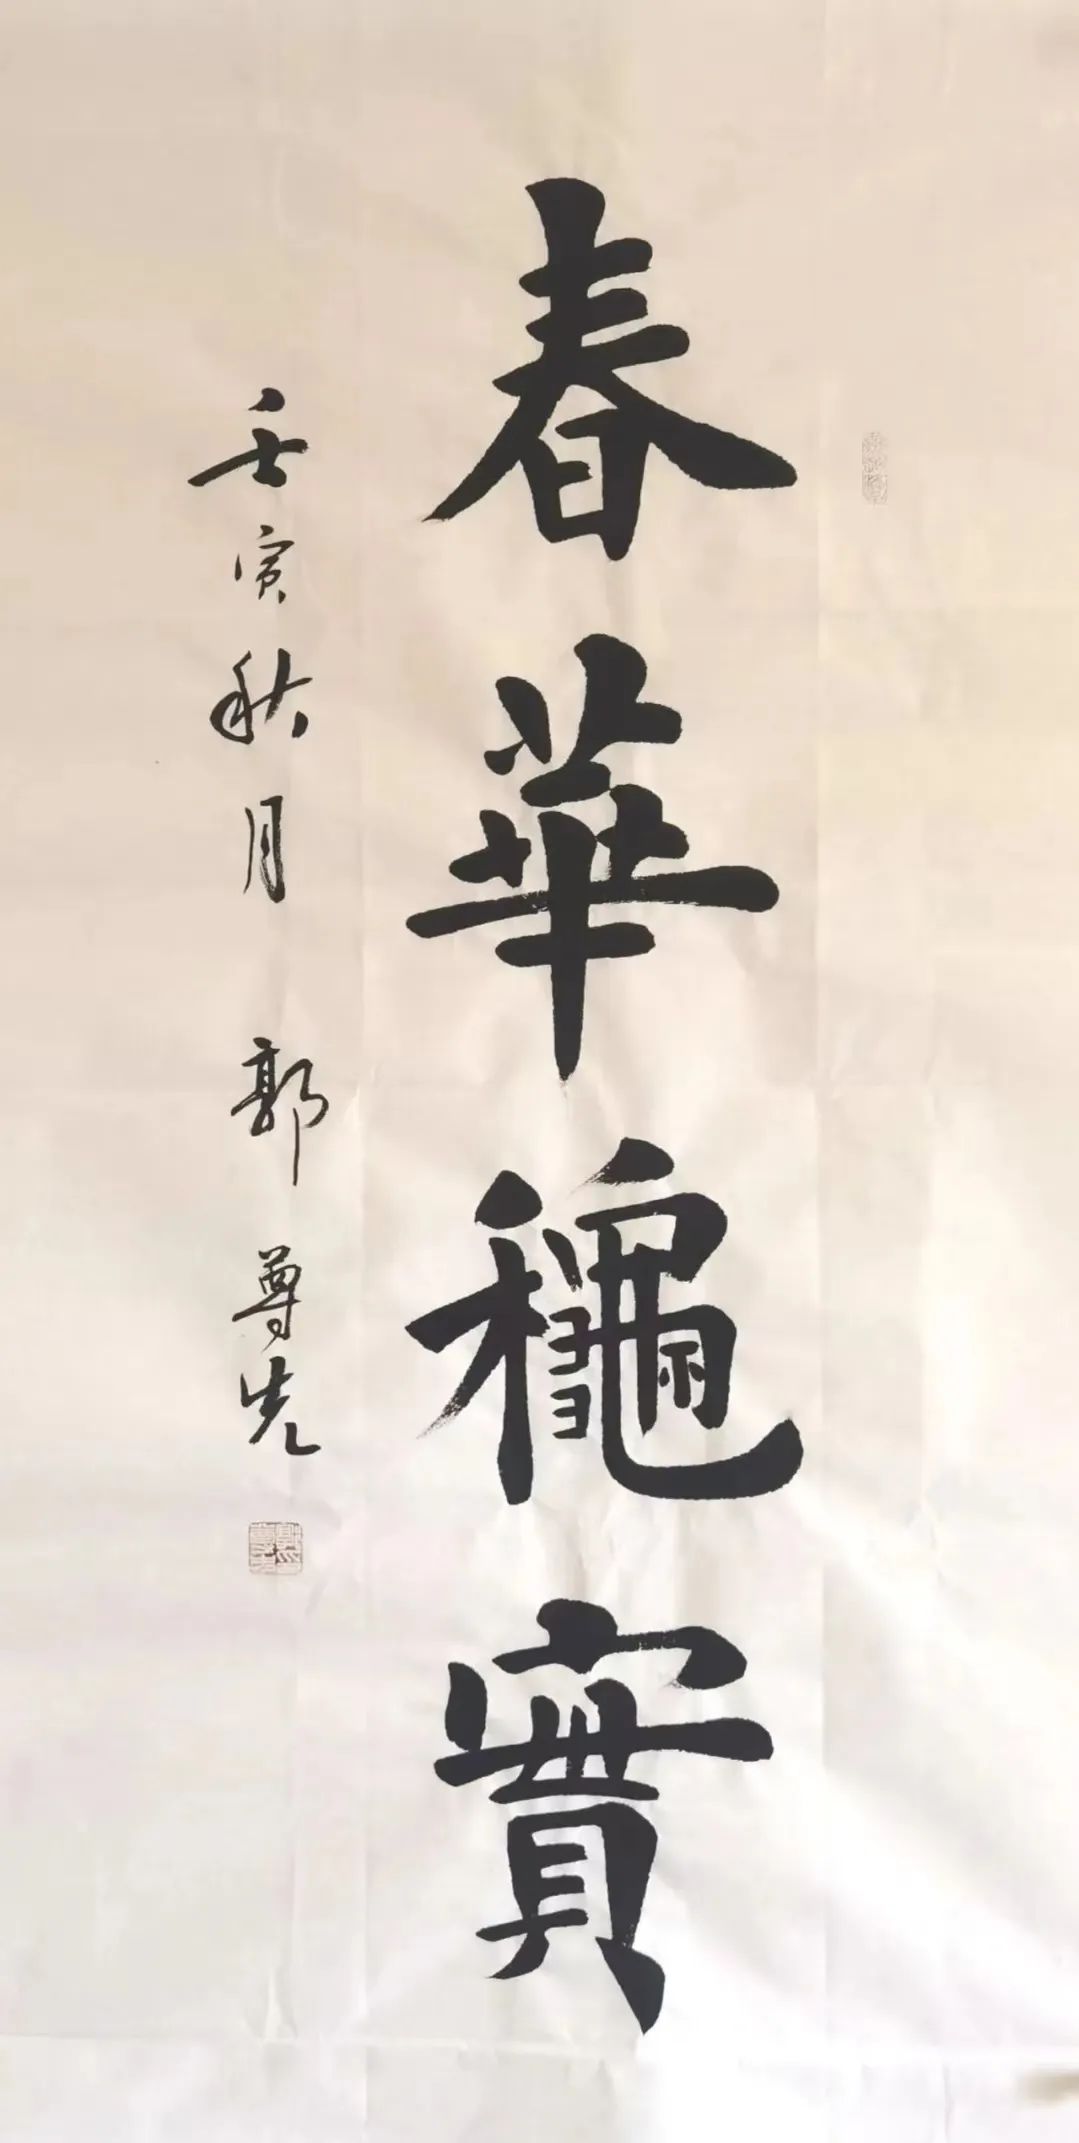 春華龝實
壬寅秋月 郭尊先